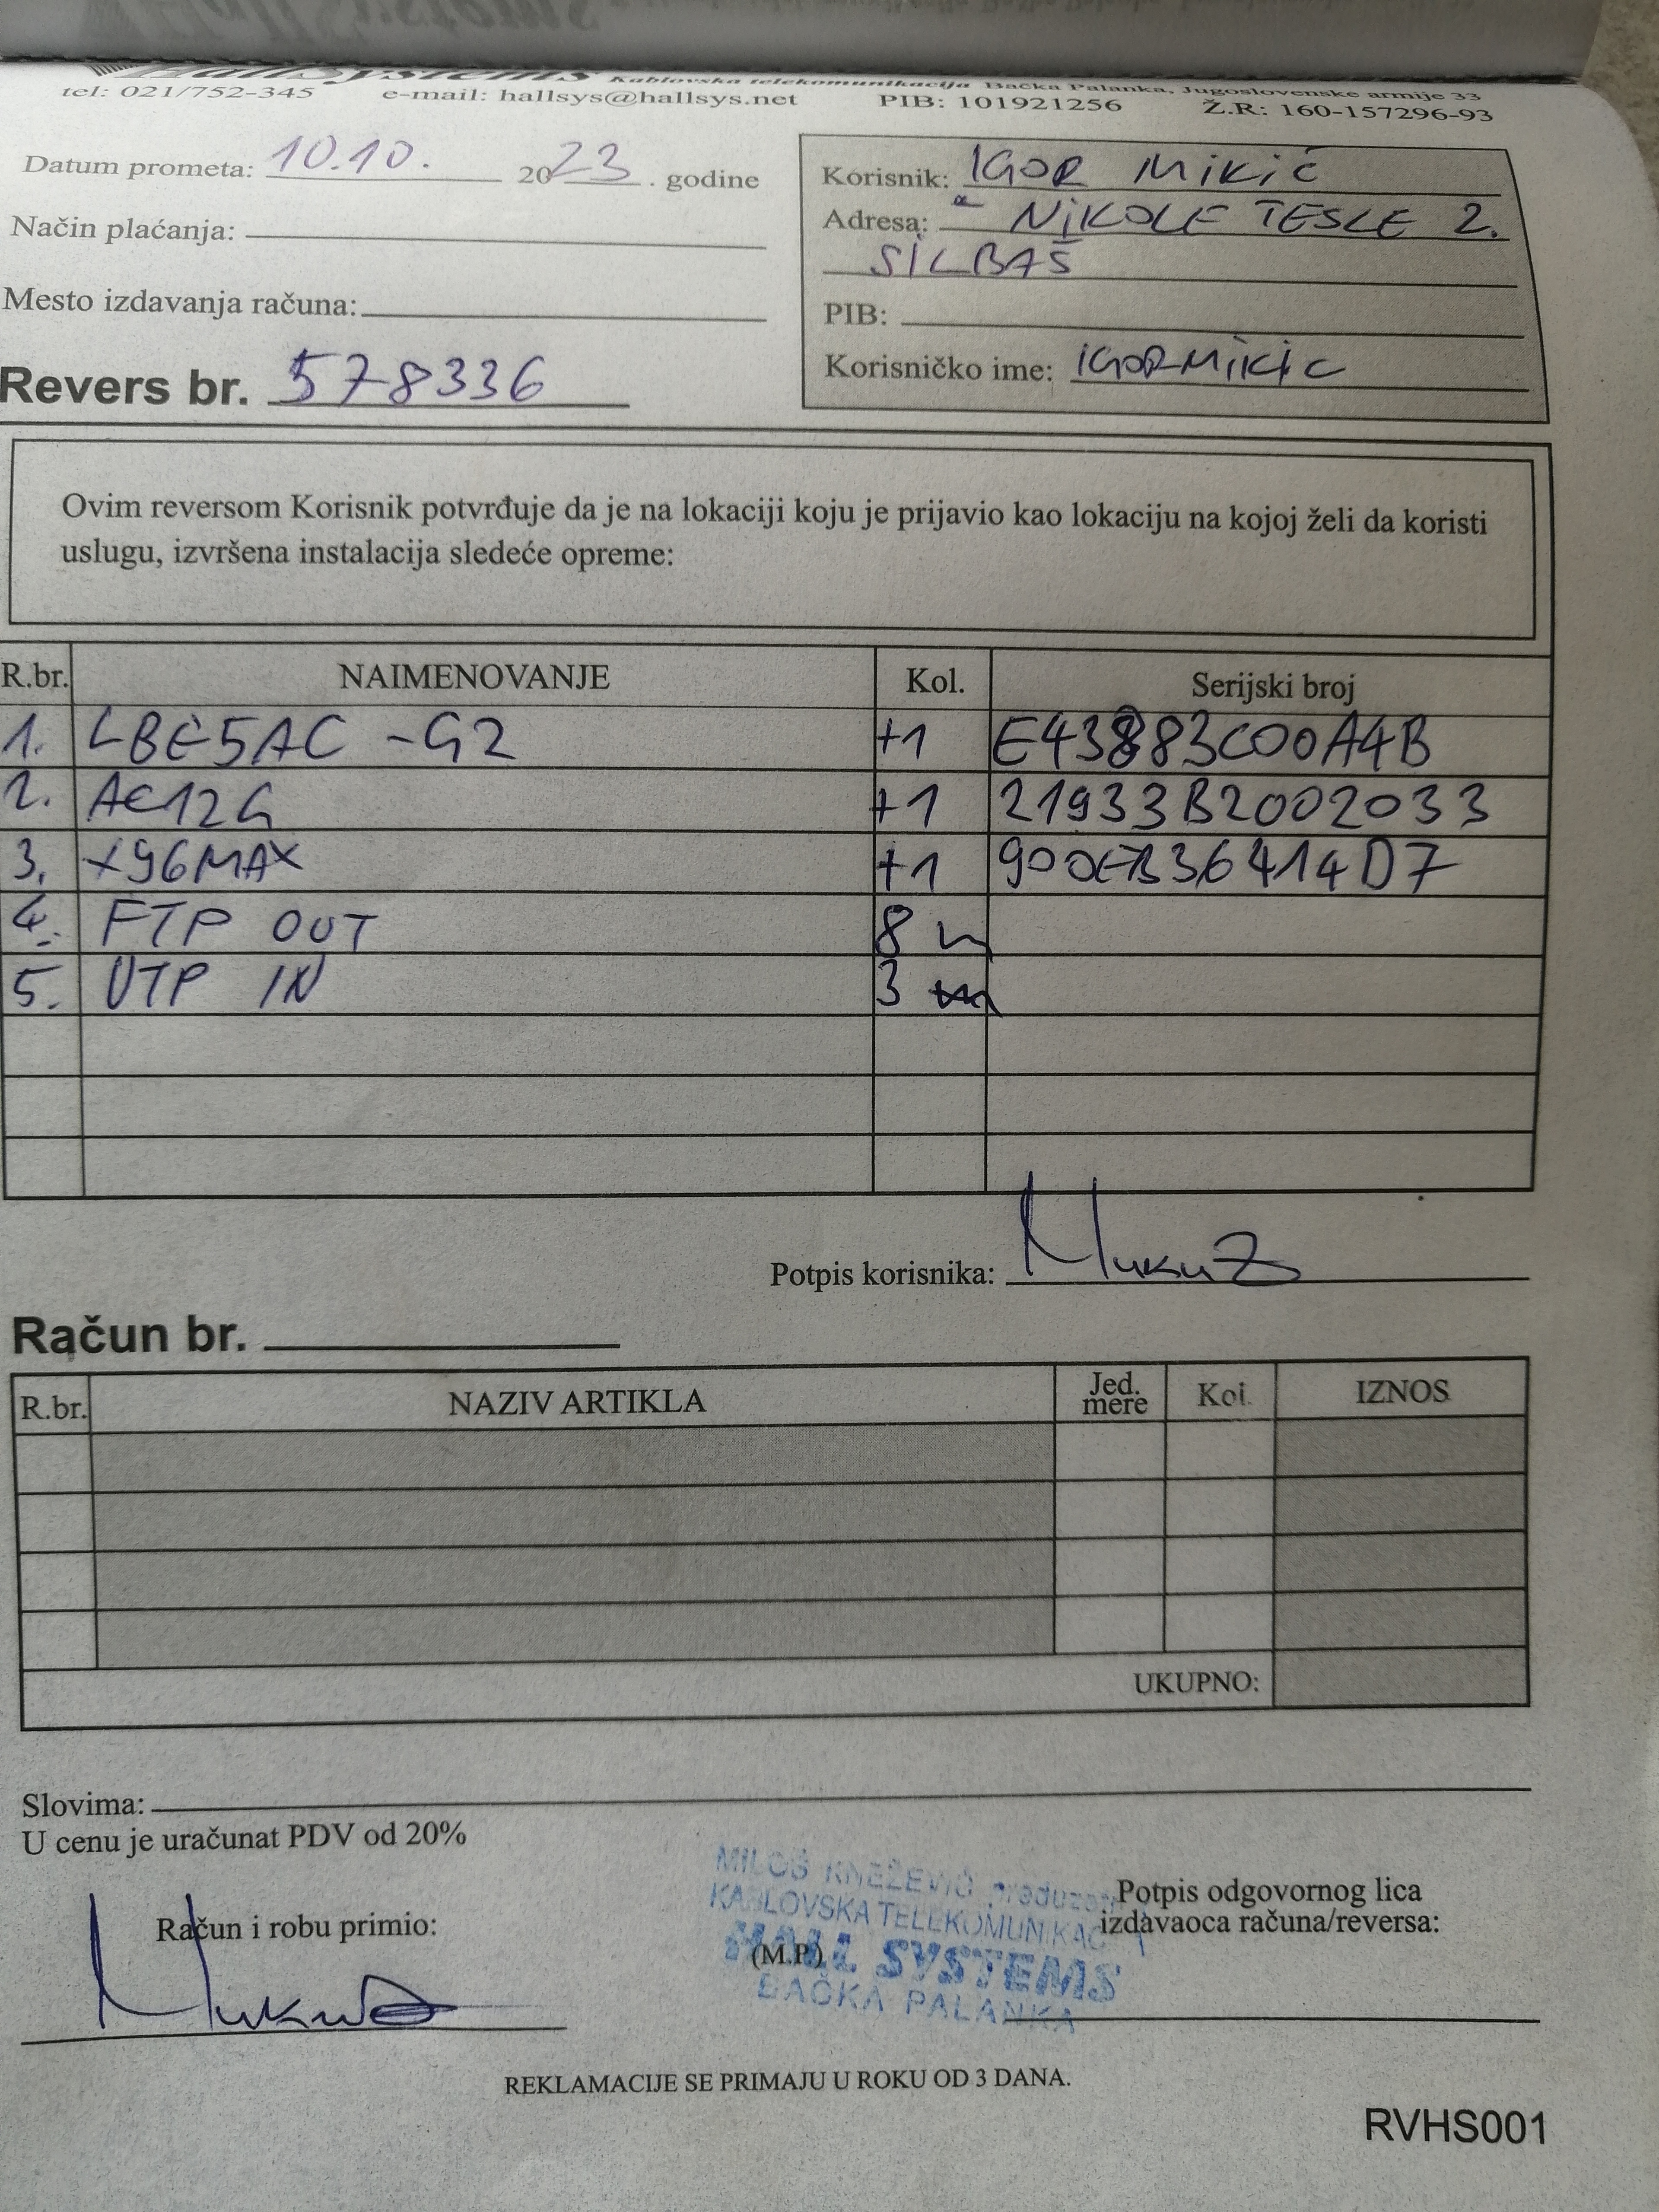 HallSystems Kablovska telekomunikacija Bačka Palanka, Jugoslovenske armije 33
tel: 021/752-345 e-mail: hallsys@hallsys.net PIB: 101921256 Ž.R: 160-157296-93
Datum prometa: 10.10. 2023. godine
Način plaćanja:
Mesto izdavanja računa:
Revers br. 578336
Korisnik: IGOR MIKIĆ
Adresa: NIKOLE TESLE 2.
SILBAŠ
PIB:
Korisničko ime: IGORMIKIC
Ovim reversom Korisnik potvrđuje da je na lokaciji koju je prijavio kao lokaciju na kojoj želi da koristi
uslugu, izvršena instalacija sledeće opreme:
R.br. NAIMENOVANJE Kol. Serijski broj
1. LBE5AC-G2 +1 E43883C00A4B
2. AC12G +1 21933B2002033
3. X96MAX +1 900EB36414D7
4. FTP OUT 8 m
5. UTP IN 3 m
Potpis korisnika:
Račun br.
R.br. NAZIV ARTIKLA Jed. mere Kol. IZNOS
UKUPNO:
Slovima:
U cenu je uračunat PDV od 20%
Račun i robu primio:
MILOŠ KNEŽEVIĆ
KABLOVSKA TELEKOMUNIKAC
(M.P.)
HALL SYSTEMS
BAČKA PALANKA
Potpis odgovornog lica
izdavaoca računa/reversa:
REKLAMACIJE SE PRIMAJU U ROKU OD 3 DANA.
RVHS001